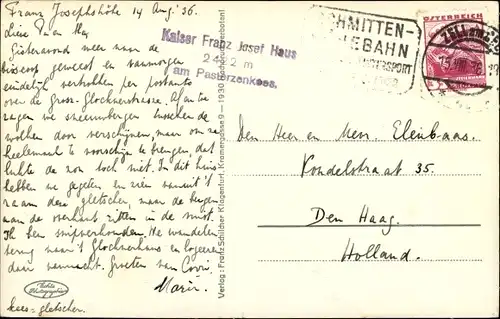 Franz Josephshöhe 14 Aug. '36.
Lieve Pa en Ma,
Gisteravond weer naar de
bioscoop geweest en vanmorgen
eindelijk vertrokken per postauto
over de Gross-Glocknerstrasse. Af en toe
zagen we sneeuwbergen tusschen de
wolken door verschijnen, maar om ze
heelemaal te voorschijn te brengen, dat
lukte de zon toch niet. In dit huis
hebben we gegeten en zien vanuit 't
raam den gletscher, maar de bergen
aan de overkant zitten in de mist.
Ik ben snipverkouden. We wandelen
terug naar 't Glocknerhaus en logeeren
daar vannacht. Groeten van Corri.
Marie.
kees = gletscher.
Echte Photographie
Kaiser Franz Josef Haus
2422 m
am Pasterzenkees.
Verlag: Franz Schilcher, Klagenfurt, Kramergasse 9 — 1930
SCHMITTEN-
HÖHEBAHN
WINTERSPORT
ÖSTERREICH
ZELL AM SEE
15.VIII.36
Den Heer en Mevr. Eleibaas.
Vondelstraat 35.
Den Haag.
Holland.